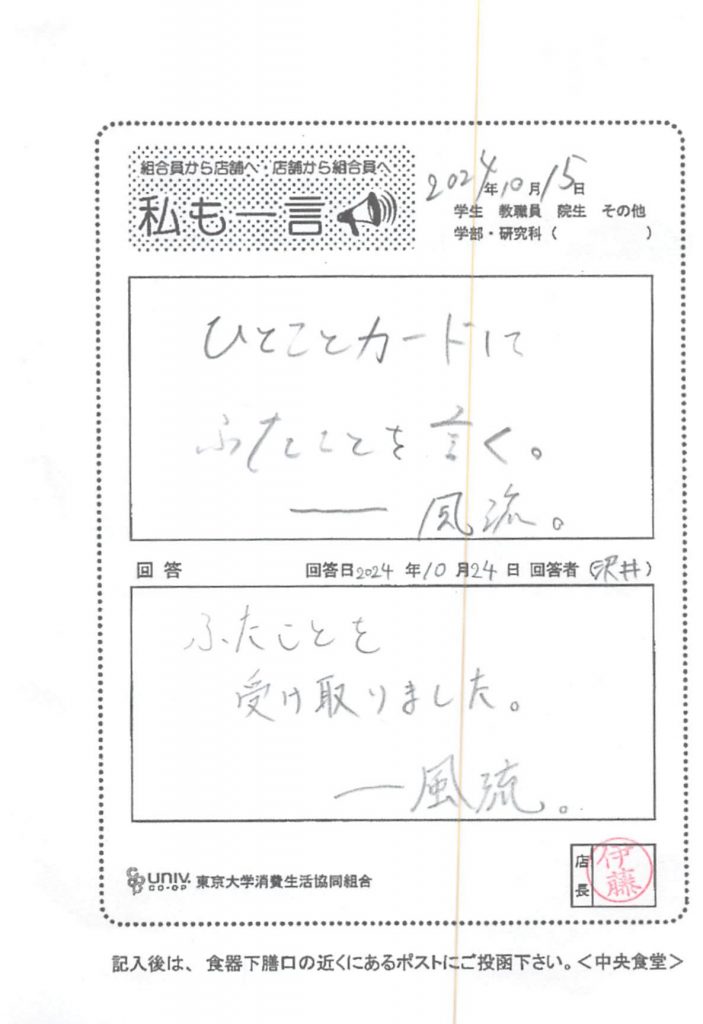 組合員から店舗へ・店舗から組合員へ
私も一言
2024年10月15日
学生 教職員 院生 その他
学部・研究科（ ）
ひとことカードに
ふたことを言く。
―― 風流。
回答 回答日2024年10月24日 回答者（沢井）
ふたことを
受け取りました。
―風流。
UNIV. CO-OP 東京大学消費生活協同組合
店長 伊藤
記入後は、食器下膳口の近くにあるポストにご投函下さい。＜中央食堂＞